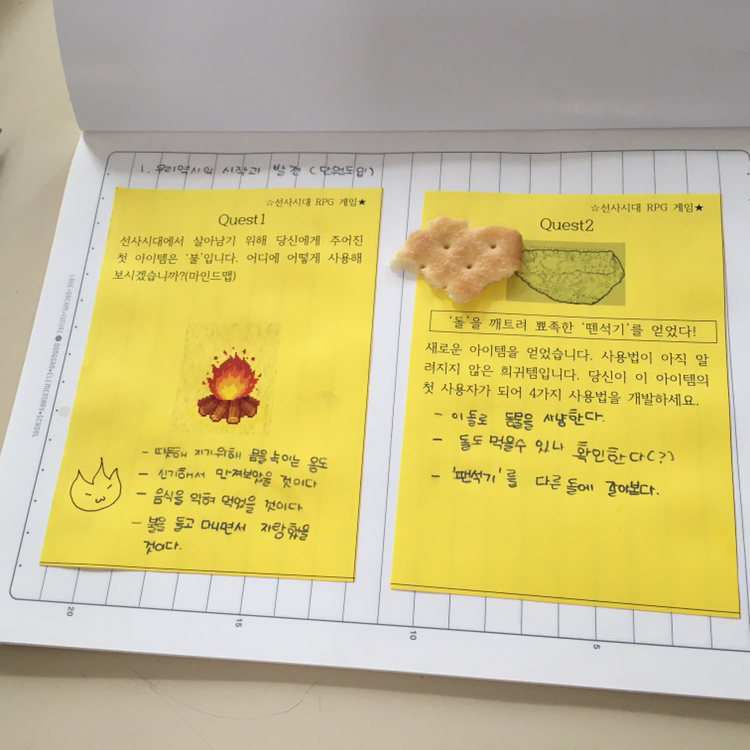 1. 우리역사의 시작과 발견 (단원도입)
☆선사시대 RPG 게임★
Quest1
선사시대에서 살아남기 위해 당신에게 주어진
첫 아이템은 '불'입니다. 어디에 어떻게 사용해
보시겠습니까?(마인드맵)
- 따뜻해 지기위해 몸을 녹이는 용도
- 신기해서 만져보았을 것이다
- 음식을 익혀 먹었을 것이다
- 불을 들고 다니면서 자랑했을
것이다.
☆선사시대 RPG 게임★
Quest2
'돌'을 깨트려 뾰족한 '뗀석기'를 얻었다!
새로운 아이템을 얻었습니다. 사용법이 아직 알
려지지 않은 희귀템입니다. 당신이 이 아이템의
첫 사용자가 되어 4가지 사용법을 개발하세요.
- 이 돌로 동물을 사냥한다.
- 돌도 먹을수 있나 확인한다(?)
- '땐석기'를 다른 돌에 갈아본다.
20
15
10
5